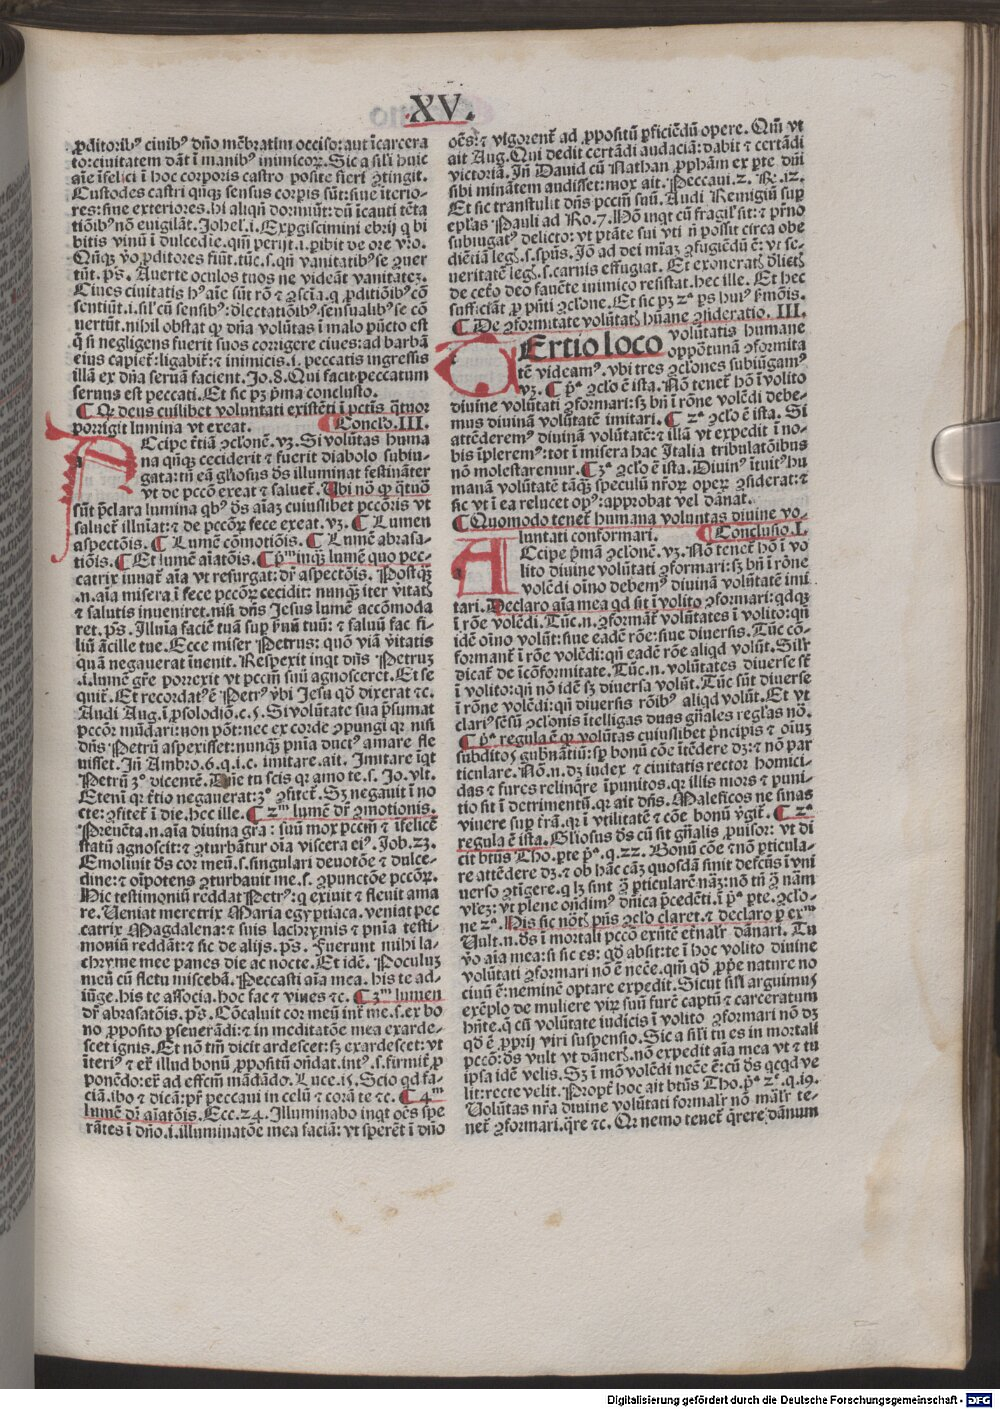 .XV.
ꝓditorib⁹ ciuib⁹ dño mẽbratim occiso: aut ĩcarcera
to: ciuitatem dãt ĩ manib⁹ inimicoꝝ. Sic a sili huic
aĩe ĩfelici ĩ hoc corporis castro posite fieri ↄtingit.
Custodes castri qñqꝫ sensus corꝑis sũt: siue ĩterio-
res: siue exteriores. hi aliqñ dormiũt: dũ ĩcauti tẽta
tiõib⁹ nõ euigilãt. Johel. i. Exꝑgiscimini ebrij q bi
bitis vinũ ĩ dulcedĩe. qm̃ perijt. i. ꝑibit de ore vr̃o.
Qñqꝫ ꝟo ꝓditores fiũt. tũc. s. qñ vanitatib⁹ se ↄuer
tũt. ps̃. Auerte oculos tuos ne videãt vanitatez.
Ciues ciuitatis h⁹ aĩe sũt rõ ⁊ ↄsciã. q ꝓditiõib⁹ cõ
sentiũt. i. sil' cũ sensib⁹: dl̃ectatiõib⁹. sensualib⁹ se cõ
uertũt. nihil obstat qꝫ dña volũtas ĩ malo pũcto est
q̃ si negligens fuerit suos corrigere ciues: ad barbã
eius capiet᷑: ligabit᷑: ⁊ inimicis. i. peccatis ingressus
illã ex dña seruã facient. Jo. 8. Qui facit peccatum
seruus est peccati. Et sic pꝫ pͥma conclusio.
¶ Qꝫ deus cuilibet voluntati existẽti ĩ pctĩs q̃tuor
porrigit lumina vt exeat. ¶ Conclo. III.
PErcipe t̃tiã ↄclonẽ. vꝫ. Si volũtas huma
na qñqꝫ ceciderit ⁊ fuerit diabolo subiu-
gata: tñ eã gl̃iosus ds̃ illuminat festinãter
vt de pccõ exeat ⁊ saluet᷑. Ubi nõ qꝫ q̃tuõ
sũt p̃clara lumina qb⁹ ds̃ aĩaꝫ cuiuslibet pccõris vt
saluet᷑ illuĩat: ⁊ de pccõꝝ fece exeat. vꝫ. ¶ Lumen
aspectõis. ¶ Lumẽ cõmotiõis. ¶ Lumẽ abrasa-
tiõis. ¶ Et lumẽ aĩatõis. ¶ p̃ᵐ inqꝫ lumẽ quo pec-
catrix iuuat᷑ aĩa vt resurgat: dr̃ aspectõis. Postqꝫ
.n. aĩa misera ĩ fece pccõꝝ cecidit: nunqꝫ iter ꝟitatꝭ
⁊ salutis inueniret. nisi dñs Jesus lumẽ accõmoda
ret. ps̃. Illuĩa faciẽ tuã suꝑ ẛuũ tuũ: ⁊ saluũ fac fi-
liũ ãcille tue. Ecce miser Petrus: quõ viã ꝟitatis
quã negauerat ĩuenit. Respexit inqt dñs Petruꝫ
.i. lumẽ gr̃e porrexit vt pccm̃ suũ agnosceret. Et se
quit᷑. Et recordat⁹ ẽ Petr⁹ ꝟbi Jesu qd̃ dixerat ⁊c.
Audi Aug. ĩ psolodiõ. c. 5. Si volũtate sua p̃sumat
pccõꝝ mũdari: non põt: nec ex corde ↄpungi qꝛ nisi
dñs Petrũ aspexisset: nunqꝫ pnĩa duct⁹ amare fle
uisset. Jñ Ambro. 6. q. i. c. imitare. ait. Imitare iqt
Petrũ 3° dicentẽ. Dñe tu scis qꝛ amo te. s. Jo. vlt.
Etenĩ qꝛ t̃tio negauerat: 3° ↄfitet᷑. Sꝫ negauit ĩ no
cte: ↄfitet᷑ ĩ die. hec ille. ¶ 2ᵐ lumẽ dr̃ ↄmotionis.
Preuẽta. n. aĩa diuina gr̃a: suũ mox pccm̃ ⁊ ĩfelicẽ
statũ agnoscit: ⁊ ↄturbãtur oĩa viscera ei⁹. Job. 23.
Emoliuit ds̃ cor meũ. s. singulari deuotõe ⁊ dulce-
dine: ⁊ oĩpotens ↄturbauit me. s. ↄpunctõe pccõꝝ.
Hic testimoniũ reddat Petr⁹: q exiuit ⁊ fleuit ama
re. Ueniat meretrix Maria egyptiaca. veniat pec
catrix Magdalena: ⁊ suis lachrymis ⁊ pnĩa testi-
moniũ reddãt: ⁊ sic de alijs. ps̃. Fuerunt mihi la-
chryme mee panes die ac nocte. Et idẽ. Poculuꝫ
meũ cũ fletu miscebã. Peccasti aĩa mea. his te ad-
iũge. his te associa. hoc fac ⁊ viues ⁊c. ¶ 3ᵐ lumen
dr̃ abrasatõis. ps̃. Cõcaluit cor meũ intͣ me. s. ex bo
no ꝓposito ꝑseuerãdi: ⁊ in meditatõe mea exarde-
scet ignis. Et nõ tm̃ dicit ardescet: sꝫ exardescet: vt
ĩteri⁹ ⁊ ext᷑ illud bonũ ꝓpositũ oñdat. int⁹. s. firmit᷑ ꝓ
ponẽdo: ext᷑ ad effcm̃ mãdãdo. Luce. 15. Scio qd fa-
ciã. ibo ⁊ dicã: pr̃ peccaui in celũ ⁊ corã te ⁊c. ¶ 4ᵐ
lumẽ dr̃ aĩatõis. Ecc. 24. Illuminabo inqt oẽs spe
rãtes ĩ dño. i. illuminatõe mea faciã: vt sꝑerẽt ĩ dño
oẽs: ⁊ vigorent᷑ ad ꝓpositũ ꝑficiẽdũ opere. Qm̃ vt
ait Aug. Qui dedit certãdi audaciã: dabit ⁊ certãdi
victoriã. Jñ Dauid cũ Nathan ꝓphãm ex ꝑte dñi
sibi minãtem audisset: mox ait. Peccaui. 2. Re. 12.
Et sic transtulit dñs pccm̃ suũ. Audi Remigiũ suꝑ
ep̃las Pauli ad Ro. 7. Hõ inqt cũ fragil' sit: ⁊ pͥmo
subiugat⁹ delicto: vt ptãte sui vti ñ possit circa obe
diẽtiã legꝭ. s. spũs. Jõ ad dei mĩaꝫ ↄfugiẽdũ ẽ: vt se-
ueritatẽ legꝭ. s. carnis effugiat. Et exoneratꝭ dl̃ictꝭ
de cet᷑o deo fauẽte inimico resistat. hec ille. Et hec
sufficiãt ꝓ pñti ↄclone. Et sic pꝫ 2ᵃ ps̃ hui⁹ ẛmõis.
¶ De ↄformitate volũtatꝭ hũane ↄsideratio. III.
TErtio loco voluntatis humane
oppõtunã ↄformita
tẽ videam⁹. vbi tres ↄclones subiũgam⁹
vꝫ. ¶ p̃ᵃ ↄclo ẽ ista. Nõ tenet᷑ hõ ĩ volito
diuine volũtati ↄformari: sꝫ bñ ĩ rõne volẽdi debe-
mus diuinã volũtatẽ imitari. ¶ 2ᵃ ↄclo ẽ ista. Si
attẽderem⁹ diuinã volũtatẽ: ⁊ illã vt expedit ĩ no-
bis ĩplerem⁹: tot ĩ misera hac Italia tribulatõibus
nõ molestaremur. ¶ 3ᵃ ↄclo ẽ ista. Diuin⁹ ĩtuit⁹ hu
manã volũtatẽ tãqꝫ speculũ nr̃oꝝ opeꝝ ↄsiderat: ⁊
sic vt ĩ ea relucet op⁹: approbat vel dãnat.
¶ Quomodo tenet᷑ humana voluntas diuine vo-
luntati conformari. ¶ Conclusio. I.
ACcipe pͥmã ↄclonẽ. vꝫ. Nõ tenet᷑ hõ ĩ vo
lito diuine volũtati ↄformari: sꝫ bñ ĩ rõne
volẽdi oĩno debem⁹ diuinã volũtatẽ imi
tari. Declaro aĩa mea qd sit ĩ volito ↄformari: qdqꝫ
ĩ rõe volẽdi. Tũc. n. ↄformãt᷑ volũtates ĩ volito: qñ
idẽ oĩno volũt: siue eadẽ rõe: siue diuersis. Tũc cõ-
formant᷑ ĩ rõe volẽdi: qñ eadẽ rõe aliqd volũt. Silr̃
dicat᷑ de ĩcõformitate. Tũc. n. volũtates diuerse sũt
ĩ volito: qñ nõ idẽ sꝫ diuersa volũt. Tũc sũt diuerse
ĩ rõne volẽdi: qñ diuersis rõib⁹ aliqd volũt. Et vt
clari⁹ sẽsũ ↄclonis ĩtelligas duas gñales regl̃as nõ.
¶ p̃ᵃ regula ẽ qꝫ volũtas cuiuslibet pͥncipis ⁊ oĩuꝫ
subditoꝝ gubñatiũ: sꝑ bonũ cõe ĩtẽdere dꝫ: ⁊ nõ par
ticulare. Nõ. n. dꝫ iudex ⁊ ciuitatis rector homici-
das ⁊ fures relinq̃re ĩpunitos. qꝛ illis mors ⁊ puni-
tio sit ĩ detrimẽtũ. qꝛ ait dñs. Maleficos ne sinas
viuere suꝑ trã. qꝛ ĩ vtilitatẽ ⁊ cõe bonũ ꝟgit᷑. ¶ 2ᵃ
regula ẽ ista. Gl̃iosus ds̃ cũ sit gñalis ꝓuisor: vt di
cit bt̃us Tho. ꝑte p̃ᵃ. q. 22. Bonũ cõe ⁊ nõ ꝑticula-
re attẽdere dꝫ. ⁊ ob hãc cãz quosdã sinit defcũs ĩ vni
uerso ↄtĩgere. q lꝫ sint ↄͣ ꝑticularẽ nãꝫ: nõ tñ ↄͣ nãm
vl̃eꝫ: vt plene oñdim⁹ dñica p̃cedẽti. ĩ p̃ᵃ ꝑte. ↄclo-
ne 2ᵃ. His sic nõtꝭ pñs ↄclo claret. ⁊ declaro ꝑ exᵐ
Uult. n. ds̃ ĩ mortali pccõ exñtẽ et̃nalr̃ dãnari. Tu
ꝟo aĩa mea: si sic es: qd̃ absit: te ĩ hoc volito diuine
volũtati ↄformari nõ ẽ necẽe. qm̃ qd̃ ꝓpͥe nature no
ciuũ ẽ: neminẽ optare expedit. Sicut sil'i arguimus
exẽplo de muliere viꝝ suũ furẽ captũ ⁊ carceratum
hñte. q̃ cũ volũtate iudicis ĩ volito ↄformari nõ dꝫ
qd̃ ẽ ꝓprij viri suspensio. Sic a sil'i tu es in mortali
pccõ: ds̃ vult vt dãnerꝭ. nõ expedit aĩa mea vt ⁊ tu
ipsa idẽ velis. Sꝫ ĩ mõ volẽdi necẽe ẽ: cũ ds̃ qcqd ve
lit: recte velit. Propt᷑ hoc ait bt̃us Tho. p̃ᵃ 2ᵉ. q. 19.
Uolũtas nr̃a diuine volũtati formalr̃ nõ mãlr̃ te-
net᷑ ↄformari. q̃re ⁊c. Qꝛ nemo tenet᷑ q̃rere dãnum
Digitalisierung gefördert durch die Deutsche Forschungsgemeinschaft - DFG